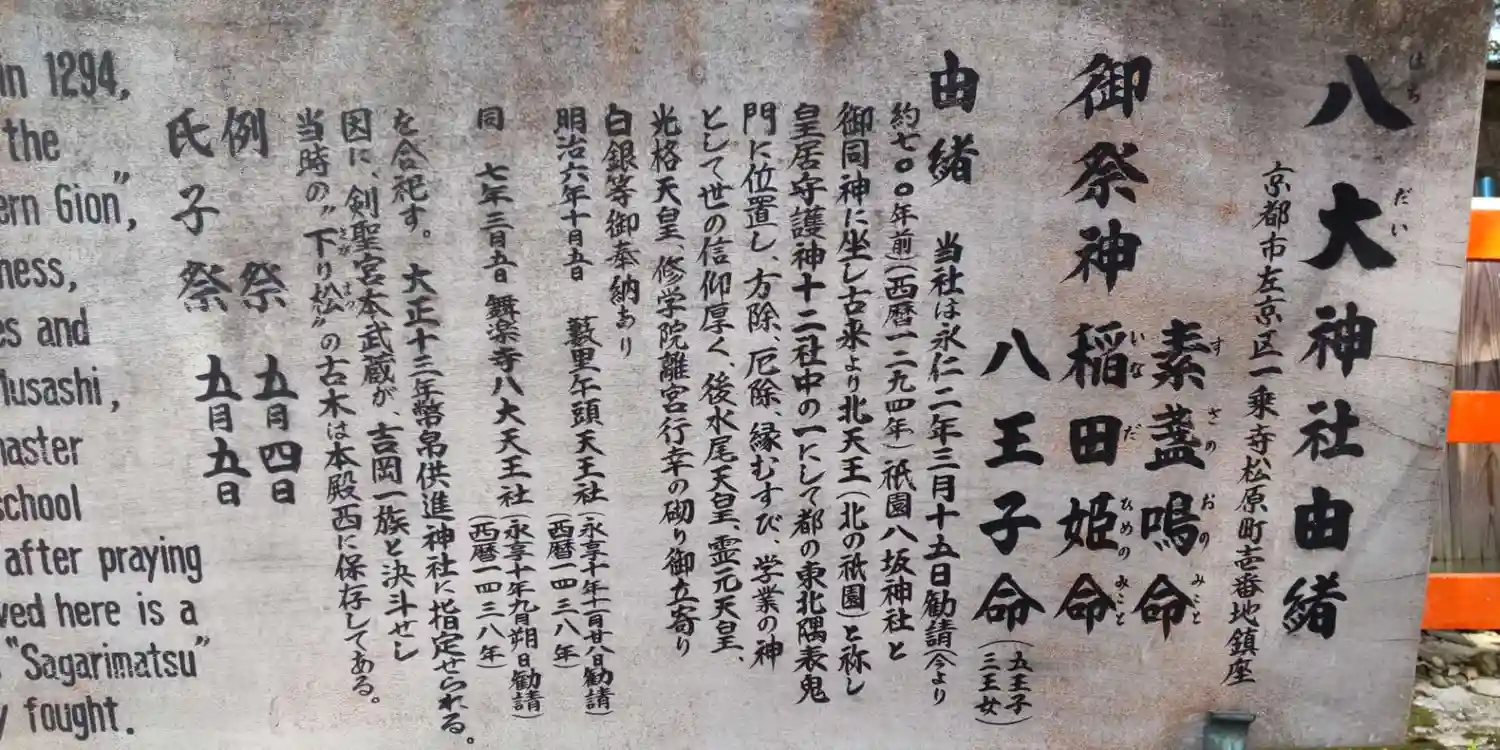 八大神社由緒
はちだい
京都市左京区一乗寺松原町壱番地鎮座
御祭神
素盞鳴命
すさのおのみこと
稲田姫命
いなだひめのみこと
八王子命(五王子三王女)
由緒
当社は永仁二年三月十五日勧請(今より
約七〇〇年前)(西暦一二九四年)祇園八坂神社と
御同神に坐し古来より北天王(北の祇園)と称し
皇居守護神十二社中の一にして都の東北隅表鬼
門に位置し、方除、厄除、縁むすび、学業の神
として世の信仰厚く、後水尾天皇、霊元天皇、
光格天皇、修学院離宮行幸の砌り御立寄り
白銀等御奉納あり
明治六年十月五日 藪里午頭天王社(永享十年十一月廿八日勧請)(西暦一四三八年)
同 七年三日五日 舞楽寺八大天王社(永享十年九月朔日勧請)(西暦一四三八年)
を合祀す。大正十三年幣帛供進神社に指定せられる。
因に、剣聖宮本武蔵が、吉岡一族と決斗せし
当時の"下り松"の古木は本殿西に保存してある。
さが まつ
例祭 五月四日
氏子祭 五月五日
in 1294,
the
ern Gion",
ness,
es and
Musashi,
master
school
after praying
ved here is a
"Sagarimatsu"
y fought.